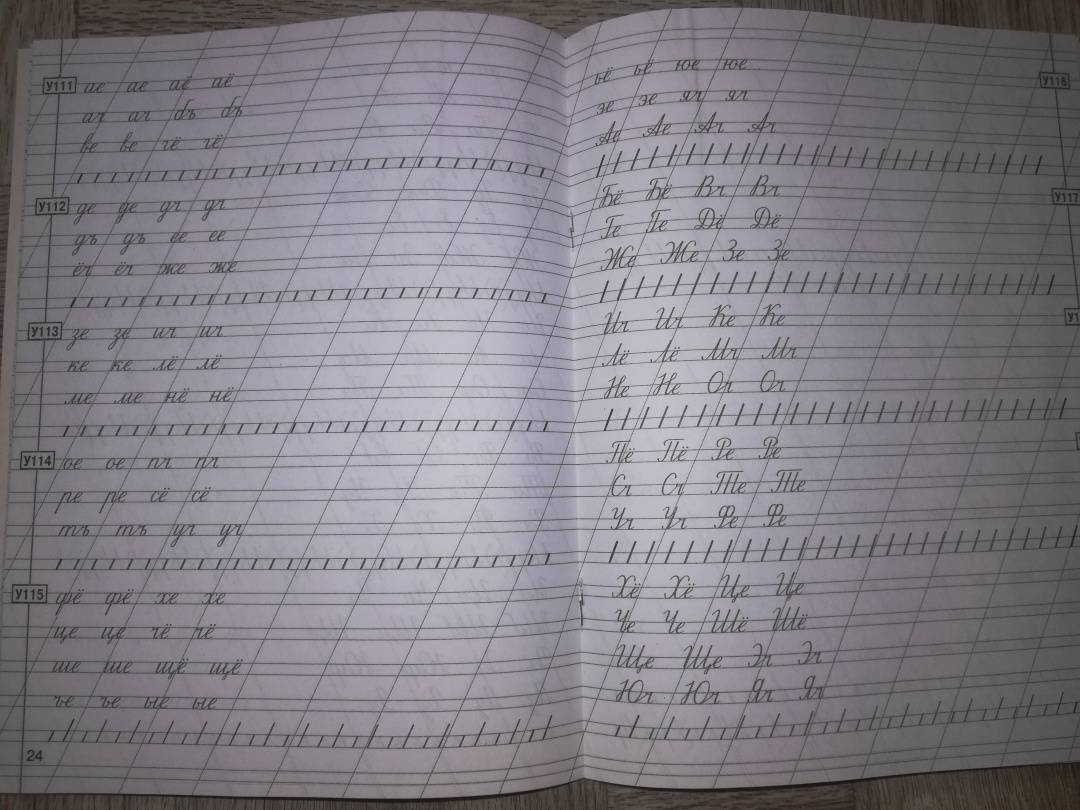 У111
ае ае аё аё
ач ач бъ бъ
ве ве гё гё
У112
де де дч дч
дъ дъ ее ее
ёч ёч же же
У113
зе зе ич ич
ке ке лё лё
ме ме нё нё
У114
ое ое пч пч
ре ре сё сё
тъ тъ уч уч
У115
фё фё хе хе
це це чё чё
ше ше щё щё
ъе ъе ые ые
24
У116
ьё ьё юе юе
эе эе яч яч
Ае Ае Ач Ач
У117
Бё Бё Вч Вч
Ге Ге Дё Дё
Же Же Зе Зе
Ич Ич Ке Ке
Лё Лё Мч Мч
Не Не Оч Оч
Пё Пё Ре Ре
Сч Сч Те Те
Уч Уч Фе Фе
Хё Хё Це Це
Че Че Шё Шё
Ще Ще Эч Эч
Юч Юч Яч Яч